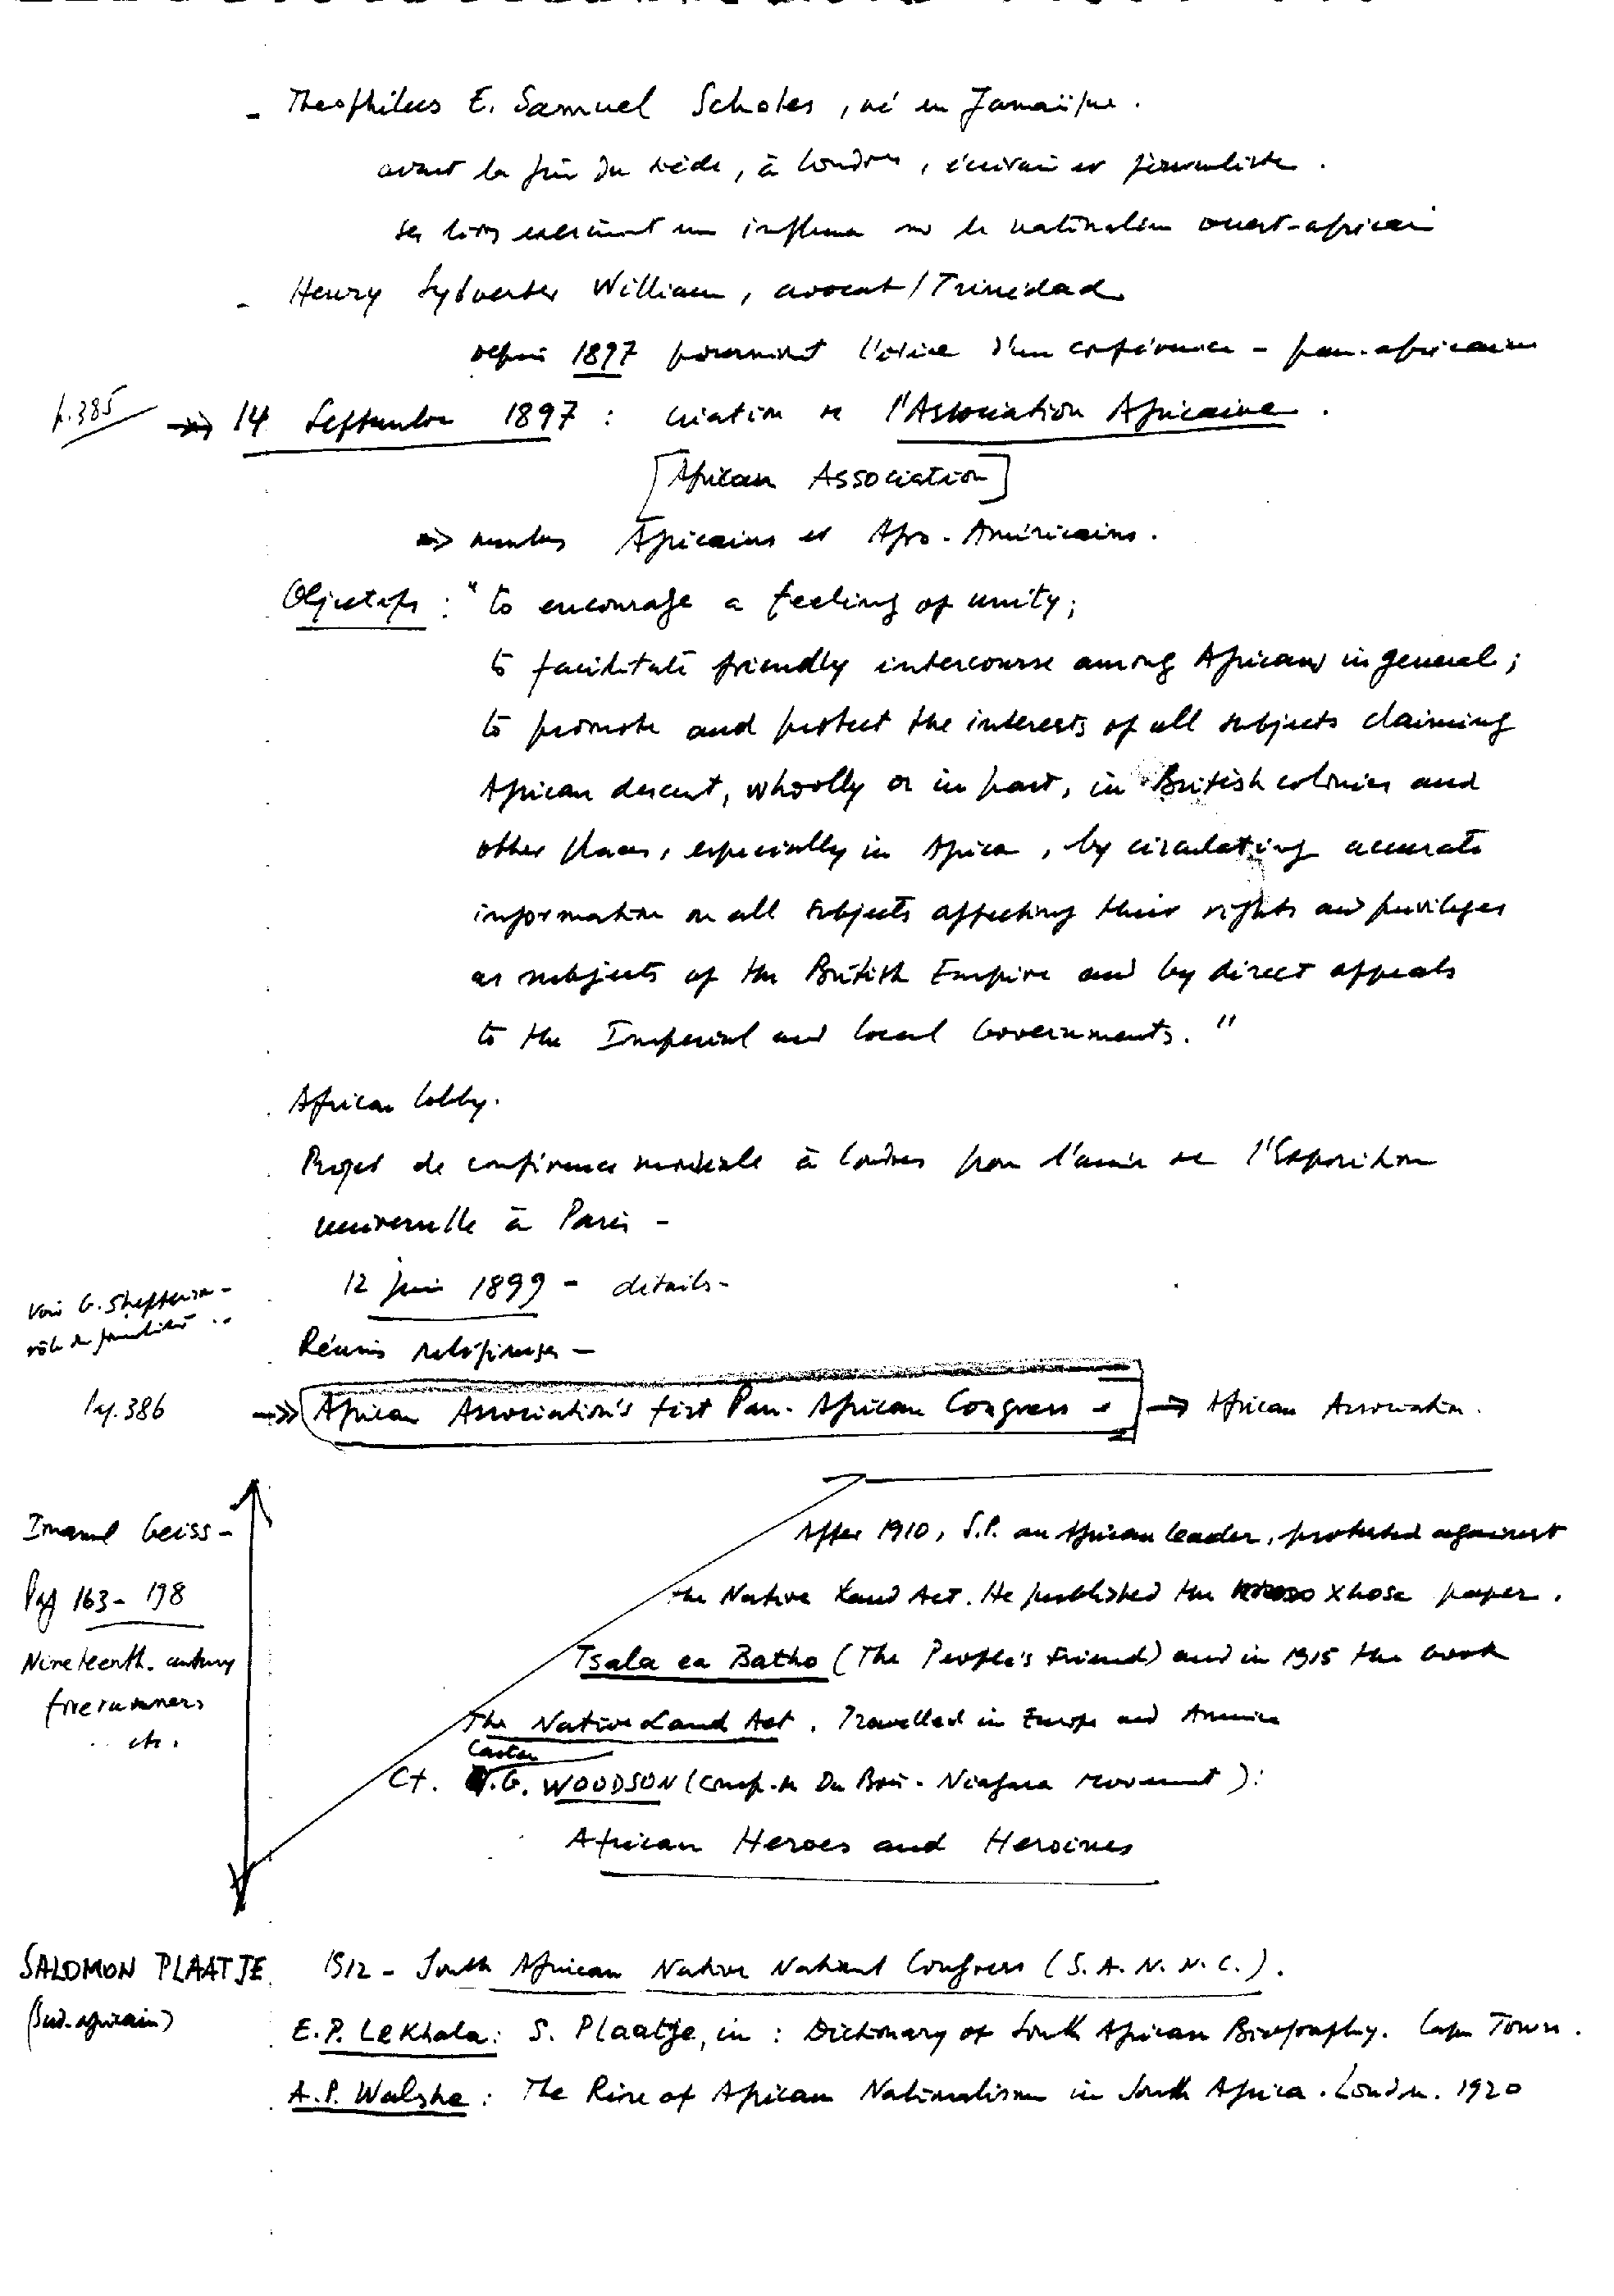 - Theophilus E. Samuel Scholes, né en Jamaïque.
avant la fin du siècle, à Londres, écrivain et journaliste.
ses livres exercèrent une influence sur le nationalisme ouest-africain
- Henry Sylvester William, avocat / Trinidad
depuis 1897 poursuivait l'idée d'une conférence - pan-africaine
p.385 => 14 Septembre 1897 : création de l'Association Africaine.
[African Association]
=> membres Africains et Afro-Américains.
Objectifs : "to encourage a feeling of unity;
to facilitate friendly intercourse among Africans in general;
to promote and protect the interests of all subjects claiming
African descent, wholly or in part, in British colonies and
other places, especially in Africa, by circulating accurate
information on all subjects affecting their rights and privileges
as subjects of the British Empire and by direct appeals
to the Imperial and local Governments."
African lobby.
Projet de conférence mondiale à Londres pour l'année de l'Exposition
universelle à Paris -
12 juin 1899 - détails -
Voir G. Shepperson -
rôle de
religieuses -
Pag. 386 ->> African Association's first Pan-African Congress - -> African Association.
Imanuel Geiss -
Pag 163 - 198
Nineteenth-century
forerunners
etc.
After 1910, S.P. an African leader, protested against
the Native Land Act. He published the Xhosa paper.
Tsala ea Batho (The People's Friend) and in 1915 the book
The Native Land Act. Travelled in Europe and America
Cf. Carter G. WOODSON (comp. de Du Bois - Niagara Movement):
African Heroes and Heroines
SALOMON PLAATJE
(Sud-africain)
1912 - South African Native National Congress (S.A.N.N.C.).
E.P. Lekhala: S. Plaatje, in: Dictionary of South African Biography. Cape Town.
A.P. Walshe: The Rise of African Nationalism in South Africa. London. 1920